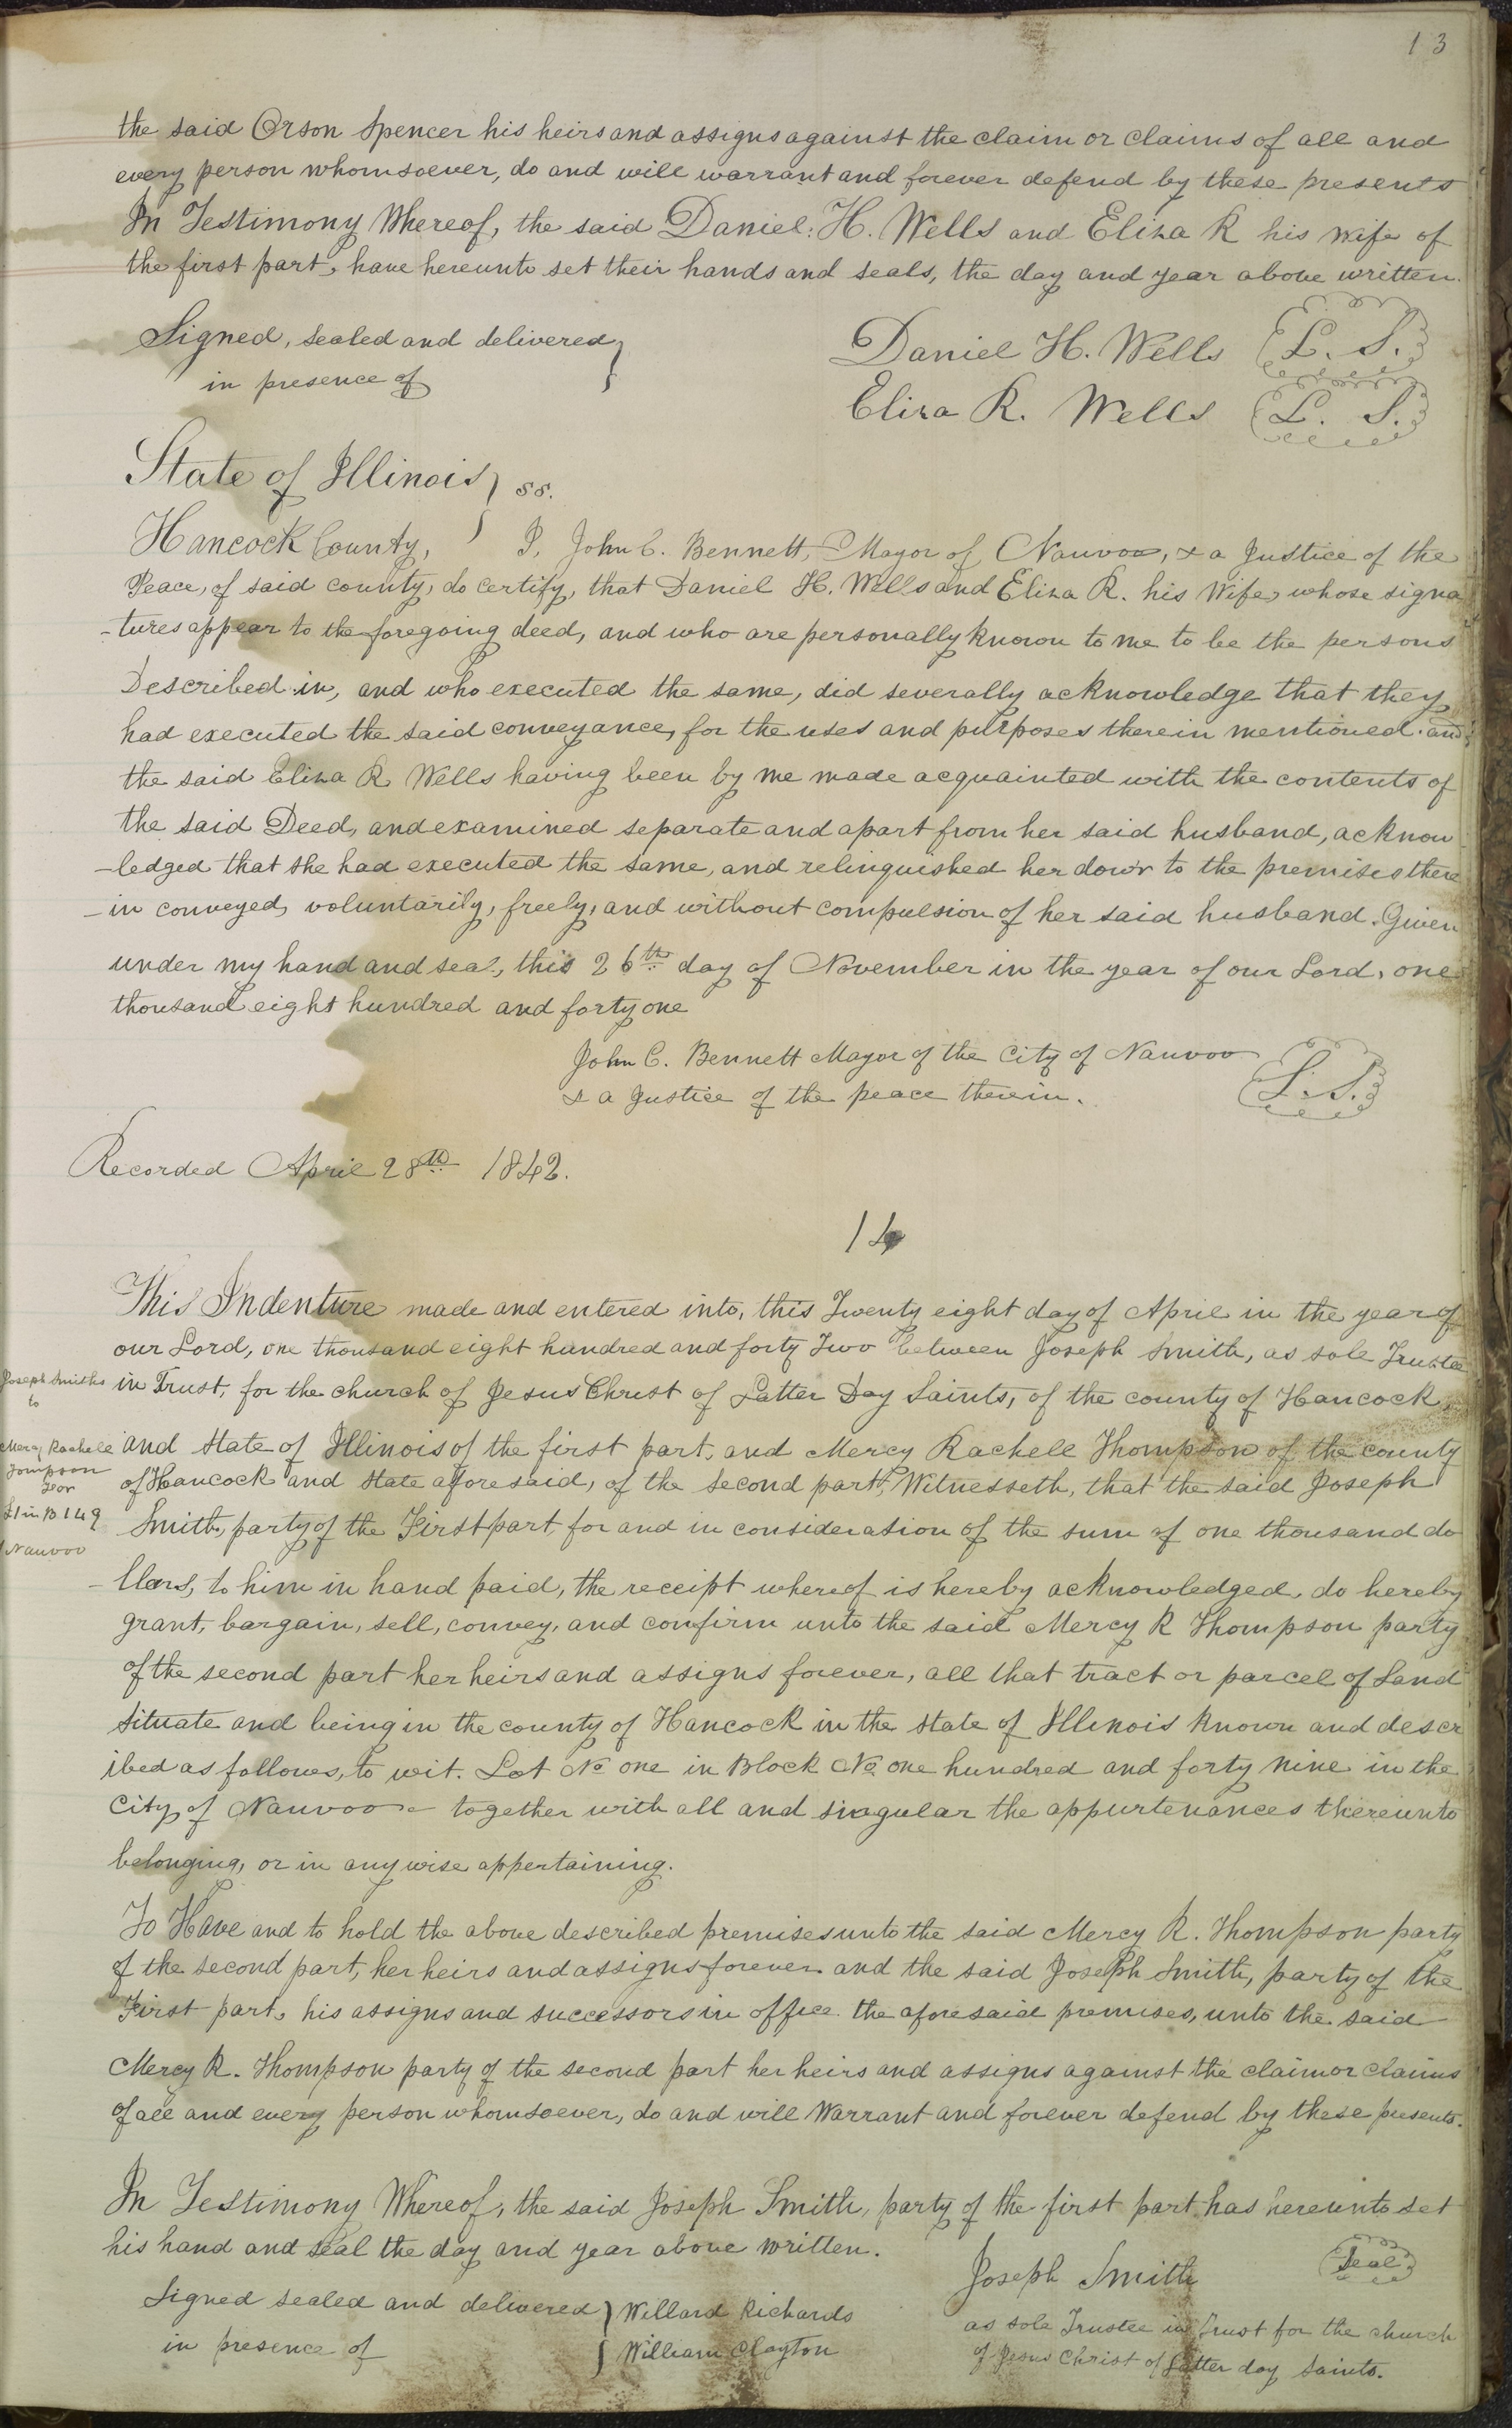 13
the said Orson Spencer his heirs and assigns against the claim or claims of all and
every person whomsoever, do and will warrant and forever defend by these presents
In Testimony Whereof, the said Daniel. H. Wells and Eliza R his wife of
the first part, have hereunto set their hands and seals, the day and year above written.
Signed, sealed and delivered }
in presence of
Daniel H. Wells L. S.
Eliza R. Wells L. S.
State of Illinois } ss.
Hancock County, I, John C. Bennett, Mayor of Nauvoo, & a Justice of the
Peace, of said county, do certify, that Daniel H. Wells and Eliza R. his Wife, whose signa
-tures appear to the foregoing deed, and who are personally known to me to be the persons
Described in, and who executed the same, did severally acknowledge that they
had executed the said conveyance, for the uses and purposes therein mentioned. and
the said Eliza R Wells having been by me made acquainted with the contents of
the said Deed, and examined separate and apart from her said husband, acknow
-ledged that she had executed the same, and relinquished her dow'r to the premises there
-in conveyed, voluntarily, freely, and without compulsion of her said husband. Given
under my hand and seal, this 26th day of November in the year of our Lord, one
thousand eight hundred and forty one
John C. Bennett Mayor of the City of Nauvoo
& a Justice of the peace therein. L. S.
Recorded April 28th 1842.
14
This Indenture made and entered into, this Twenty eight day of April in the year of
our Lord, one thousand eight hundred and forty Two between Joseph Smith, as sole Trustee
in Trust, for the church of Jesus Christ of Latter Day Saints, of the county of Hancock,
and State of Illinois of the first part, and Mercy Rachell Thompson of the county
of Hancock and State aforesaid, of the second part, Witnesseth, that the said Joseph
Smith, party of the First part, for and in consideration of the sum of one thousand do
-llars, to him in hand paid, the receipt whereof is hereby acknowledged, do hereby
grant, bargain, sell, convey, and confirm unto the said Mercy R Thompson party
of the second part her heirs and assigns forever, all that tract or parcel of Land
situate and being in the county of Hancock in the State of Illinois known and descr
ibed as follows, to wit. Lot No one in Block No one hundred and forty nine in the
City of Nauvoo together with all and singular the appurtenances thereunto
belonging, or in any wise appertaining.
To Have and to hold the above described premises unto the said Mercy R. Thompson party
of the second part, her heirs and assigns forever and the said Joseph Smith, party of the
First part, his assigns and successors in office the aforesaid premises, unto the said
Mercy R. Thompson party of the second part her heirs and assigns against the claim or claims
of all and every person whomsoever, do and will Warrant and forever defend by these presents.
In Testimony Whereof, the said Joseph Smith, party of the first part has hereunto set
his hand and seal the day and year above written.
Signed sealed and delivered } Willard Richards
in presence of } William Clayton
Joseph Smith Seal
as sole Trustee in Trust for the church
of Jesus Christ of Latter day Saints.
Joseph Smiths
to
Mercy Rachell
Tompson
L1 in B 149
Nauvoo